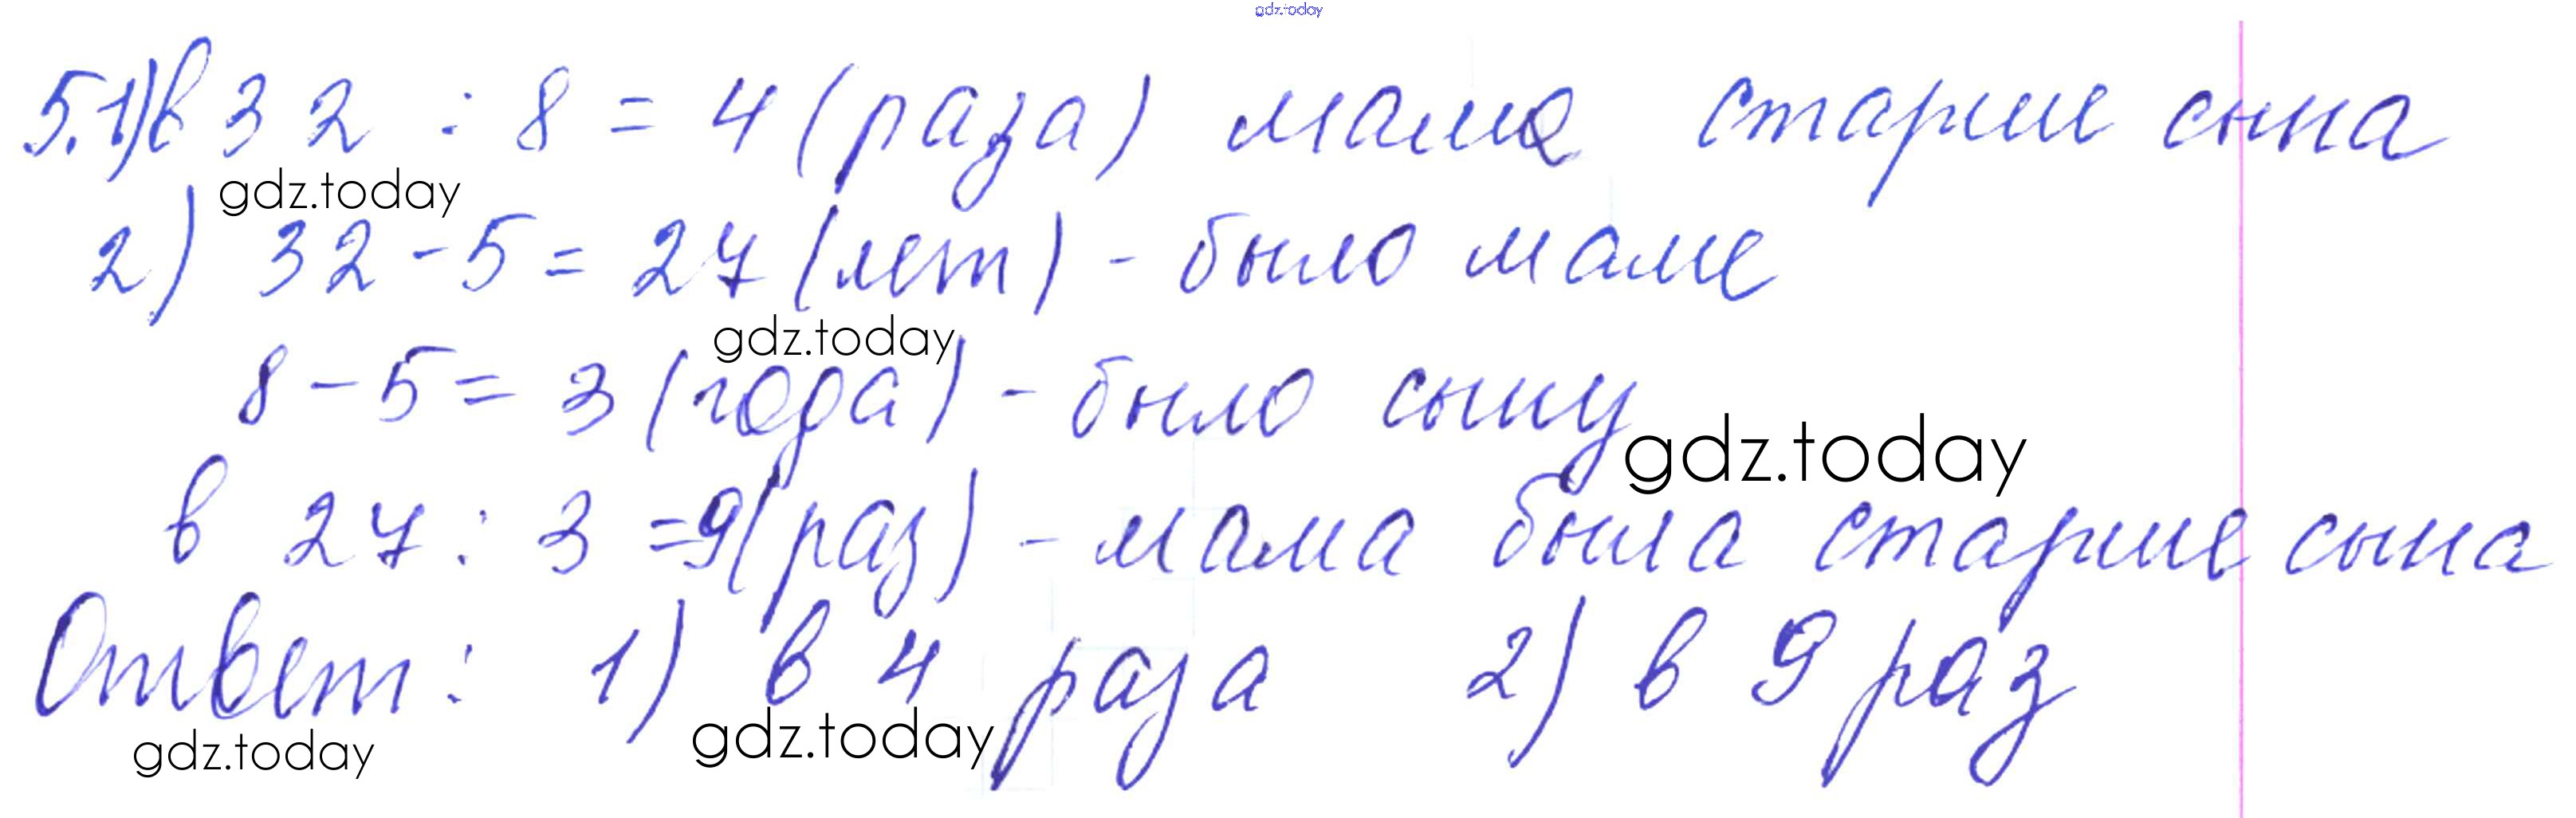 gdz.today
5.1) в 32 : 8 = 4 (раза) мама старше сына
gdz.today
2) 32 - 5 = 27 (лет) - было маме
gdz.today
8 - 5 = 3 (года) - было сыну
gdz.today
в 27 : 3 = 9 (раз) - мама была старше сына
Ответ: 1) в 4 раза 2) в 9 раз
gdz.today gdz.today